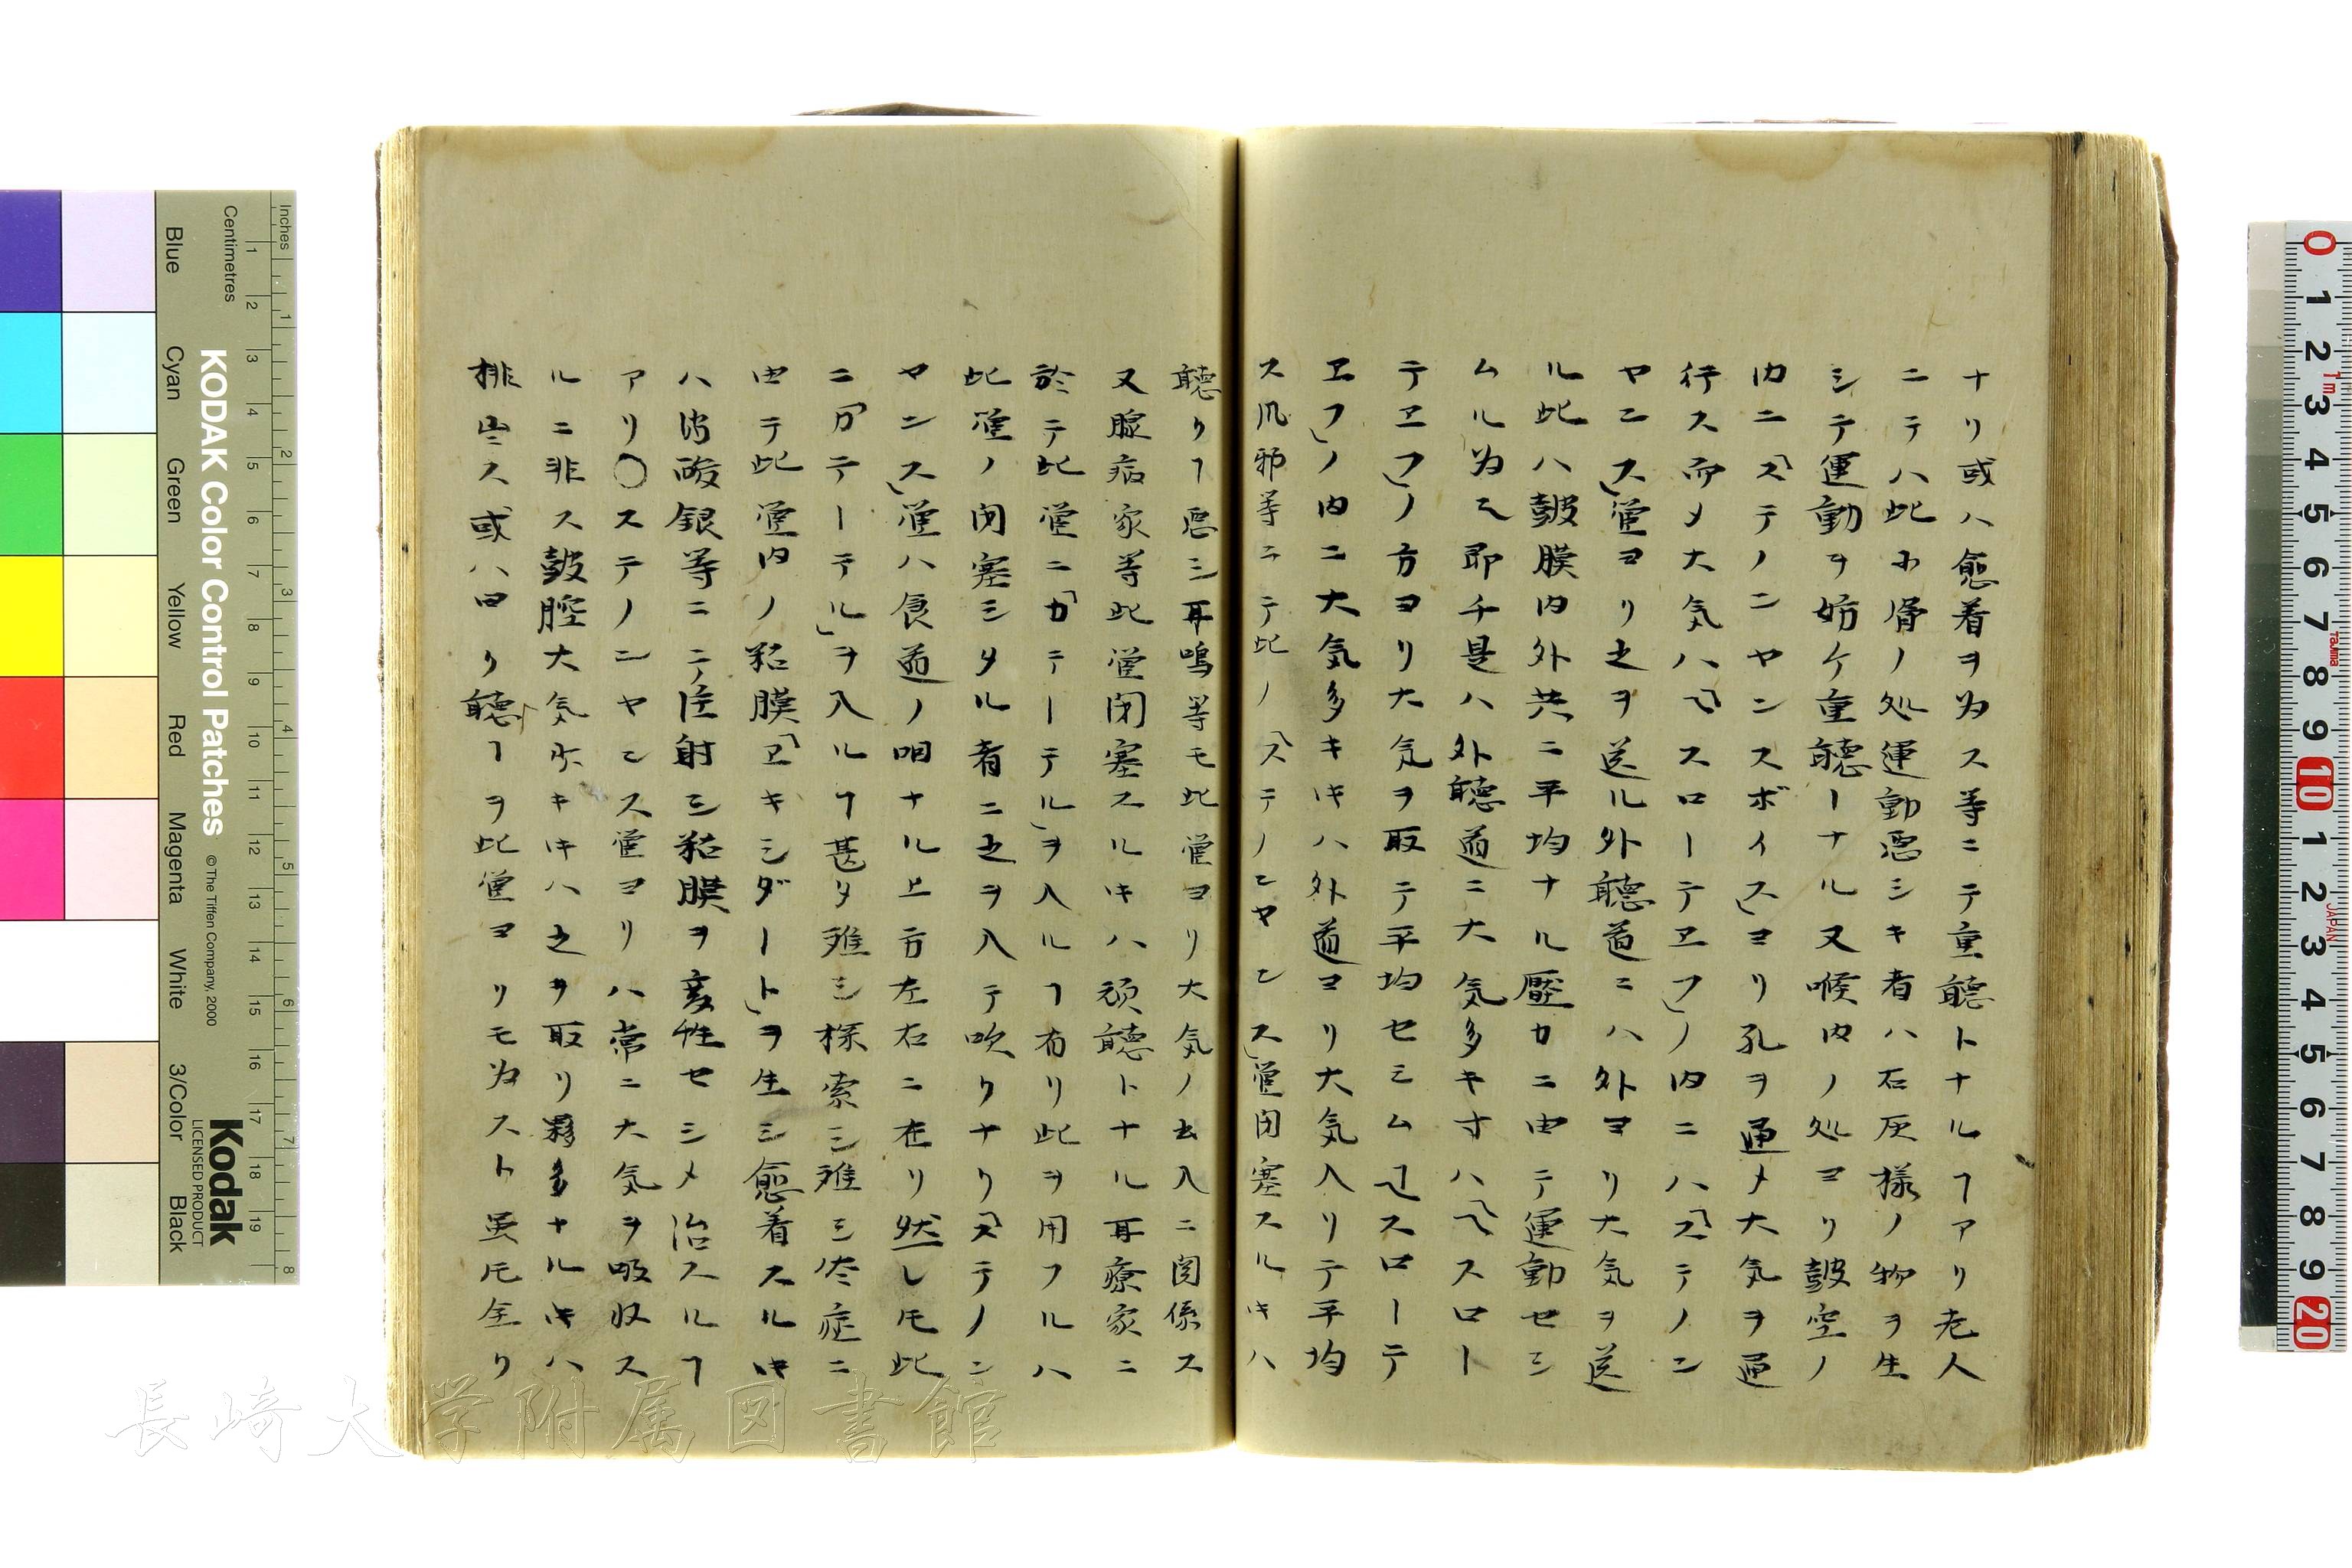 ナリ或ハ愈着ヲ為ス等ニテ重聴トナルヿアリ老人
ニテハ此小骨ノ処運動悪シキ者ハ石灰様ノ物ヲ生
シテ運動ヲ妨ケ重聴ーナル又喉内ノ処ヨリ皷空ノ
内ニ「ステノンヤンスボイス」ヨリ孔ヲ通メ大気ヲ通
行ス而メ大気ハ「ヘスローテヱフ」ノ内ニハ「ステノン
ヤンス」管ヨリ之ヲ送ル外聴道ニハ外ヨリ大気ヲ送
ル此ハ皷膜内外共ニ平均ナル壓力ニ由テ運動セシ
ムル為ミ即チ是ハ外聴道ニ大気多キ寸ハ「ヘスロー
テヱフ」ノ方ヨリ大気ヲ取テ平均セシム「ヘスローテ
ヱフ」ノ内ニ大気多キ𪜈ハ外道ヨリ大気入リテ平均
ス風邪等ニテ此ノ「ステノンヤンス」管閉塞スルキハ
聴クヿ悪シ耳鳴等モ此管ヨリ大気ノ出入ニ関係ス
又腺病家等此管閉塞スルキハ頑聴トナル耳療家ニ
於テ此管ニ「カテーテル」ヲ入ルヿ有リ此ヲ用フルハ
此管ノ閉塞シタル者ニ之ヲ入テ吹クナリ「ステノン
ヤンス」管ハ食道ノ咽ナル上方左右ニ在リ然レ𪜈此
ニ「カテーテル」ヲ入ルヿ甚タ難シ探索シ難シ炎症ニ
由テ此管内ノ粘膜「ヱキシダート」ヲ生シ愈着スルキ
ハ消酸銀等ニテ注射シ粘膜ヲ変性セシメ治スルヿ
アリ〇ステノンヤンス管ヨリハ常ニ大気ヲ吸収ス
ルニ非ス皷腔大気少キキハ之ヲ取リ夥多ナルキハ
排出ス或ハ曰ク聴クヿヲ此管ヨリモ為スト虽𪜈全ク
Inches
Centimetres
KODAK Color Control Patches
© The Tiffen Company, 2000
Kodak
LICENSED PRODUCT
Blue
Cyan
Green
Yellow
Red
Magenta
White
3/Color
Black
長崎大学附属図書館